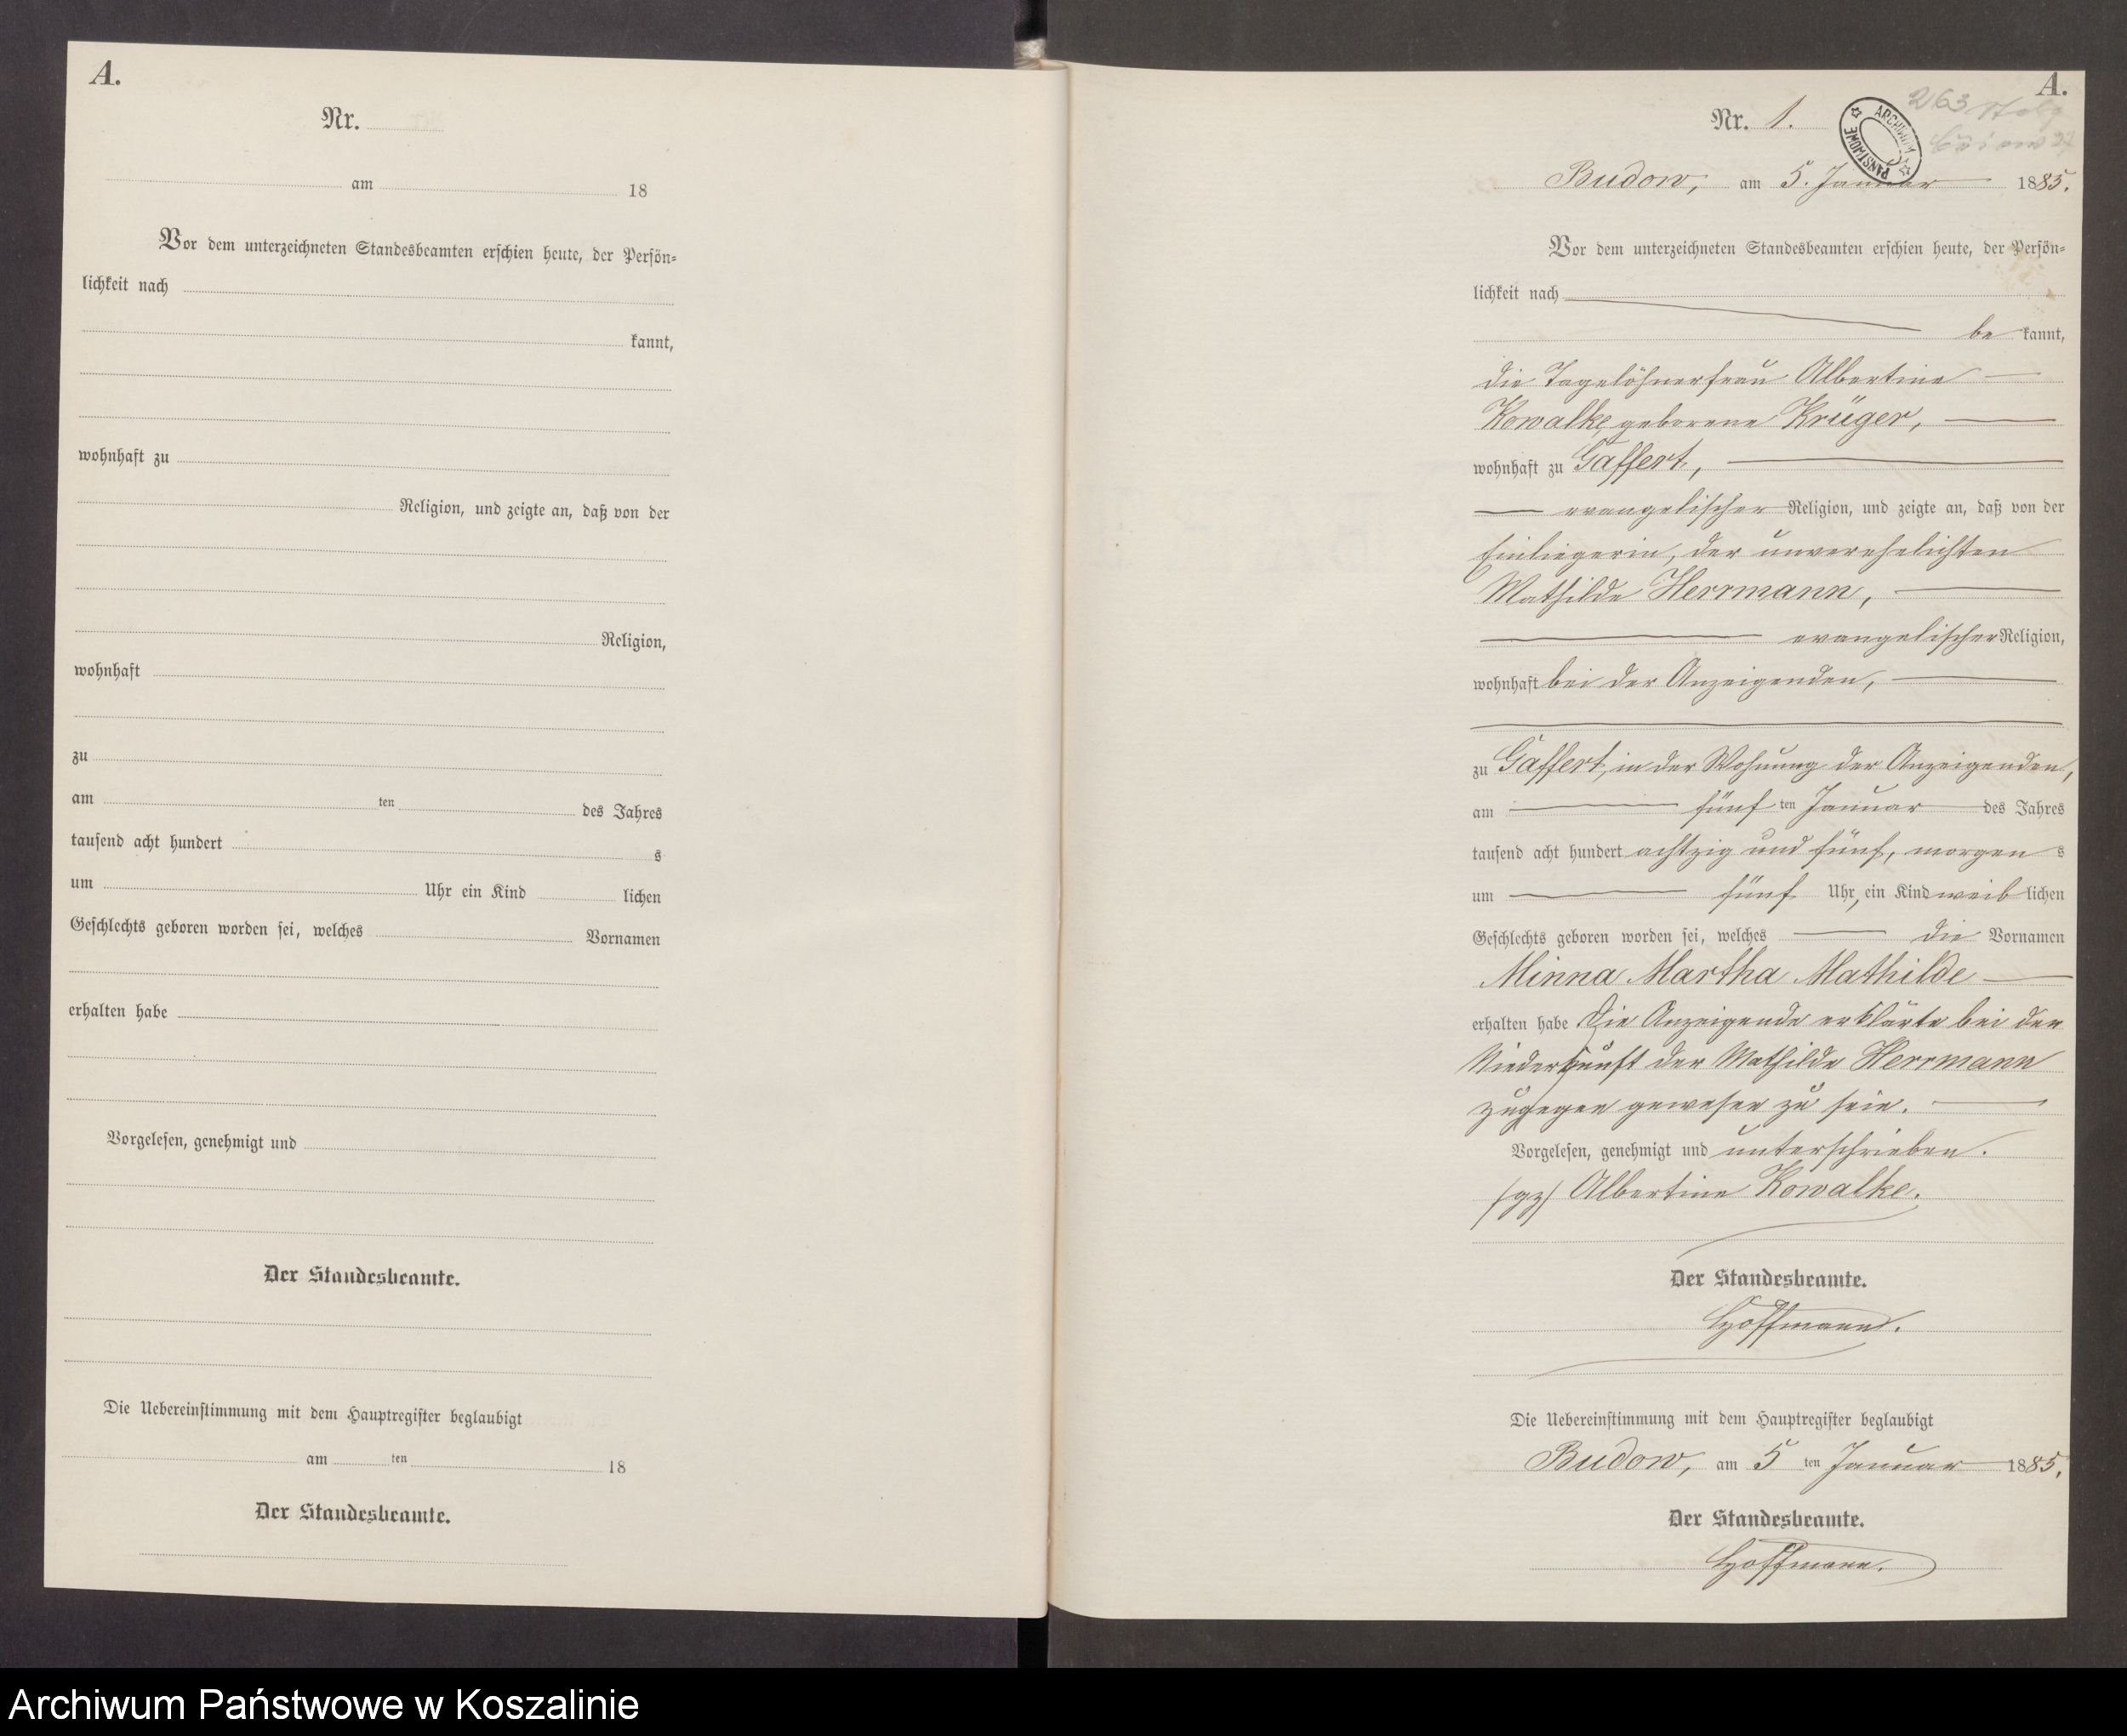 A.
Nr.
am 18
Vor dem unterzeichneten Standesbeamten erschien heute, der Persön-
lichkeit nach
kannt,
wohnhaft zu
Religion, und zeigte an, daß von der
Religion,
wohnhaft
zu
am ten des Jahres
tausend acht hundert s
um Uhr ein Kind lichen
Geschlechts geboren worden sei, welches Vornamen
erhalten habe
Vorgelesen, genehmigt und
Der Standesbeamte.
Die Uebereinstimmung mit dem Hauptregister beglaubigt
am ten 18
Der Standesbeamte.
A.
263
Nr. 1.
ARCHIWUM PAŃSTWOWE
Budow, am 5. Januar 1885.
Vor dem unterzeichneten Standesbeamten erschien heute, der Persön-
lichkeit nach
be kannt,
die Tagelöhnerfrau Albertine
Kowalke, geborene Krüger,
wohnhaft zu Gaffert,
evangelischer Religion, und zeigte an, daß von der
Einliegerin, der unverehelichten
Mathilde Herrmann,
evangelischer Religion,
wohnhaft bei der Anzeigenden,
zu Gaffert, in der Wohnung der Anzeigenden,
am fünf ten Januar des Jahres
tausend acht hundert achtzig und fünf, morgen s
um fünf Uhr, ein Kind weib lichen
Geschlechts geboren worden sei, welches die Vornamen
Minna Martha Mathilde
erhalten habe Die Anzeigende erklärte bei der
Niederkunft der Mathilde Herrmann
zugegen gewesen zu sein.
Vorgelesen, genehmigt und unterschrieben.
(gz) Albertine Kowalke.
Der Standesbeamte.
Hoffmann.
Die Uebereinstimmung mit dem Hauptregister beglaubigt
Budow, am 5 ten Januar 1885.
Der Standesbeamte.
Hoffmann.
Archiwum Państwowe w Koszalinie